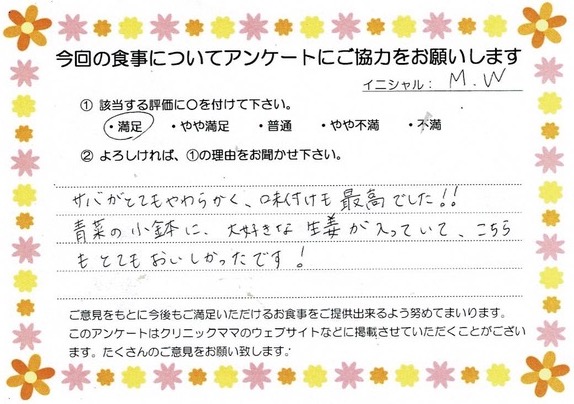 今回の食事についてアンケートにご協力をお願いします
イニシャル： M.W
① 該当する評価に〇を付けて下さい。
・満足 ・やや満足 ・普通 ・やや不満 ・不満
② よろしければ、①の理由をお聞かせ下さい。
サバがとてもやわらかく、味付けも最高でした!!
青菜の小鉢に、大好きな生姜が入っていて、こちら
もとてもおいしかったです!
ご意見をもとに今後もご満足いただけるお食事をご提供出来るよう努めてまいります。
このアンケートはクリニックママのウェブサイトなどに掲載させていただくことがござい
ます。たくさんのご意見をお願い致します。